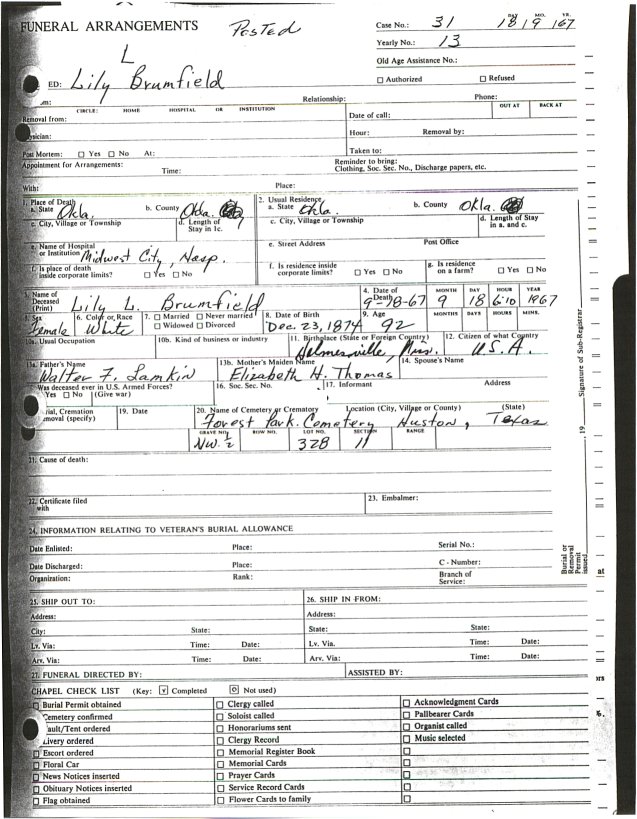 FUNERAL ARRANGEMENTS
Posted
Case No.: 31
DAY MO. YR.
18 19 167
Yearly No.: 13
Old Age Assistance No.:
☐ Authorized ☐ Refused
L
ED: Lily Brumfield
Relationship: Phone:
CIRCLE: HOME HOSPITAL OR INSTITUTION
OUT AT BACK AT
Removal from: Date of call:
Hour: Removal by:
Post Mortem: ☐ Yes ☐ No At: Taken to:
Appointment for Arrangements: Time:
Reminder to bring:
Clothing, Soc. Sec. No., Discharge papers, etc.
With: Place:
1. Place of Death
a. State Okla. b. County Okla.
2. Usual Residence
a. State Okla. b. County Okla.
c. City, Village or Township d. Length of Stay in 1c.
c. City, Village or Township d. Length of Stay in a. and c.
e. Name of Hospital or Institution Midwest City, Hosp.
e. Street Address Post Office
f. Is place of death inside corporate limits? ☐ Yes ☐ No
f. Is residence inside corporate limits? ☐ Yes ☐ No
g. Is residence on a farm? ☐ Yes ☐ No
3. Name of Deceased (Print) Lily L. Brumfield
4. Date of Death 9-18-67
MONTH DAY HOUR YEAR
9 18 6:10 1967
5. Sex Female
6. Color or Race White
7. ☐ Married ☐ Never married
☐ Widowed ☐ Divorced
8. Date of Birth Dec. 23, 1874
9. Age 92
MONTHS DAYS HOURS MINS.
10a. Usual Occupation 10b. Kind of business or industry
11. Birthplace (State or Foreign Country) Miss.
12. Citizen of what Country U.S.A.
13a. Father's Name Walter F. Lamkin
13b. Mother's Maiden Name Elizabeth H. Thomas
14. Spouse's Name
Was deceased ever in U.S. Armed Forces?
Yes ☐ No (Give war)
16. Soc. Sec. No. 17. Informant Address
rial, Cremation
emoval (specify)
19. Date
20. Name of Cemetery or Crematory Location (City, Village or County) (State)
Forest Park Cemetery Huston, Texas
GRAVE NO. ROW NO. LOT NO. SECTION RANGE
NW ½ 328 11
21. Cause of death:
22. Certificate filed with 23. Embalmer:
24. INFORMATION RELATING TO VETERAN'S BURIAL ALLOWANCE
Date Enlisted: Place: Serial No.:
Date Discharged: Place: C - Number:
Organization: Rank: Branch of Service:
25. SHIP OUT TO: 26. SHIP IN FROM:
Address: Address:
City: State: State: State:
Lv. Via: Time: Date: Lv. Via. Time: Date:
Arv. Via: Time: Date: Arv. Via: Time: Date:
27. FUNERAL DIRECTED BY: ASSISTED BY:
CHAPEL CHECK LIST (Key: ☑ Completed ⊡ Not used)
☐ Burial Permit obtained ☐ Clergy called ☐ Acknowledgment Cards
Cemetery confirmed ☐ Soloist called ☐ Pallbearer Cards
ault/Tent ordered ☐ Honorariums sent ☐ Organist called
Livery ordered ☐ Clergy Record ☐ Music selected
☐ Escort ordered ☐ Memorial Register Book ☐
☐ Floral Car ☐ Memorial Cards ☐
☐ News Notices inserted ☐ Prayer Cards ☐
☐ Obituary Notices inserted ☐ Service Record Cards ☐
☐ Flag obtained ☐ Flower Cards to family ☐
Signature of Sub-Registrar
19
Burial or Removal Permit issued
at